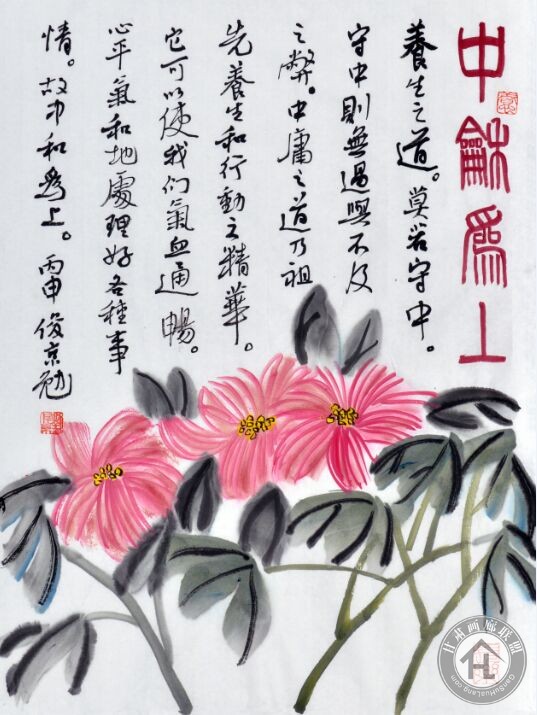 中龢為上
養生之道。莫若守中。
守中則無過與不及
之弊。中庸之道乃祖
先養生和行動之精華。
它可以使我们氣血通暢。
心平氣和地處理好各種事
情。故中和為上。丙申 俊京勉
甘肃画廊联盟
GanSuHuaLang.com